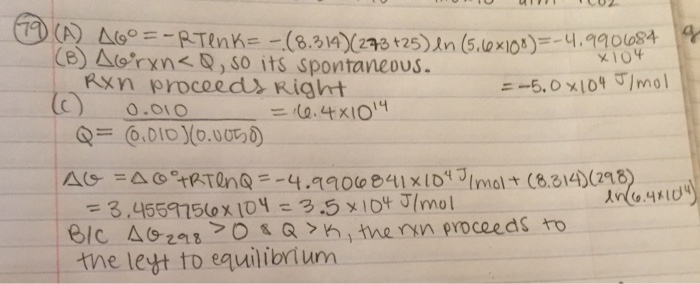 79 (A) ΔG° = -RTlnK = -(8.314)(273+25) ln (5.6x10⁸) = -4.990684 x10⁴
(B) ΔG°rxn < Q, so its spontaneous. = -5.0 x10⁴ J/mol
Rxn proceeds Right
(C) 0.010 = 6.4x10¹⁴
Q = (0.010)(0.0050)
ΔG = ΔG°+RTlnQ = -4.9906841x10⁴ J/mol + (8.314)(298) ln(6.4x10¹⁴)
= 3.4559756x10⁴ = 3.5x10⁴ J/mol
B/C ΔG298 > 0 & Q > K, the rxn proceeds to
the left to equilibrium